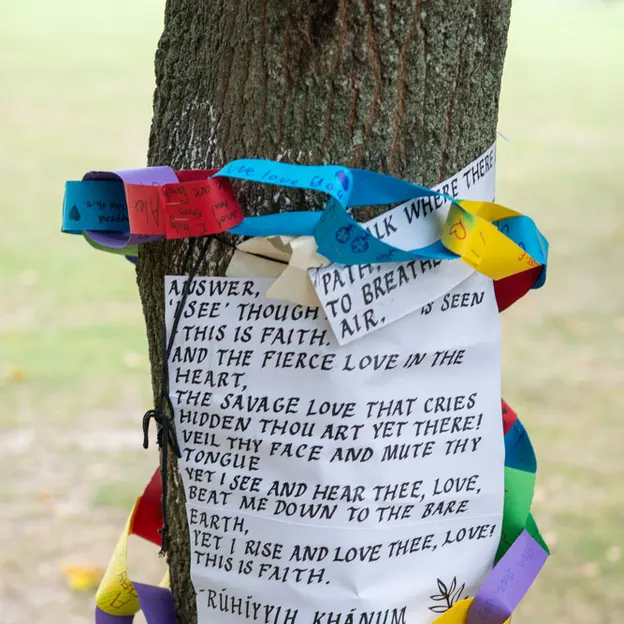 We love you
ALK WHERE THERE
PATH,
TO BREATHE
AIR,
ANSWER,
'I SEE' THOUGH IS SEEN
THIS IS FAITH.
AND THE FIERCE LOVE IN THE
HEART,
THE SAVAGE LOVE THAT CRIES
HIDDEN THOU ART YET THERE!
VEIL THY FACE AND MUTE THY
TONGUE
YET I SEE AND HEAR THEE, LOVE,
BEAT ME DOWN TO THE BARE
EARTH,
YET I RISE AND LOVE THEE, LOVE!
THIS IS FAITH.
~RÚHÍYYIH KHÁNUM